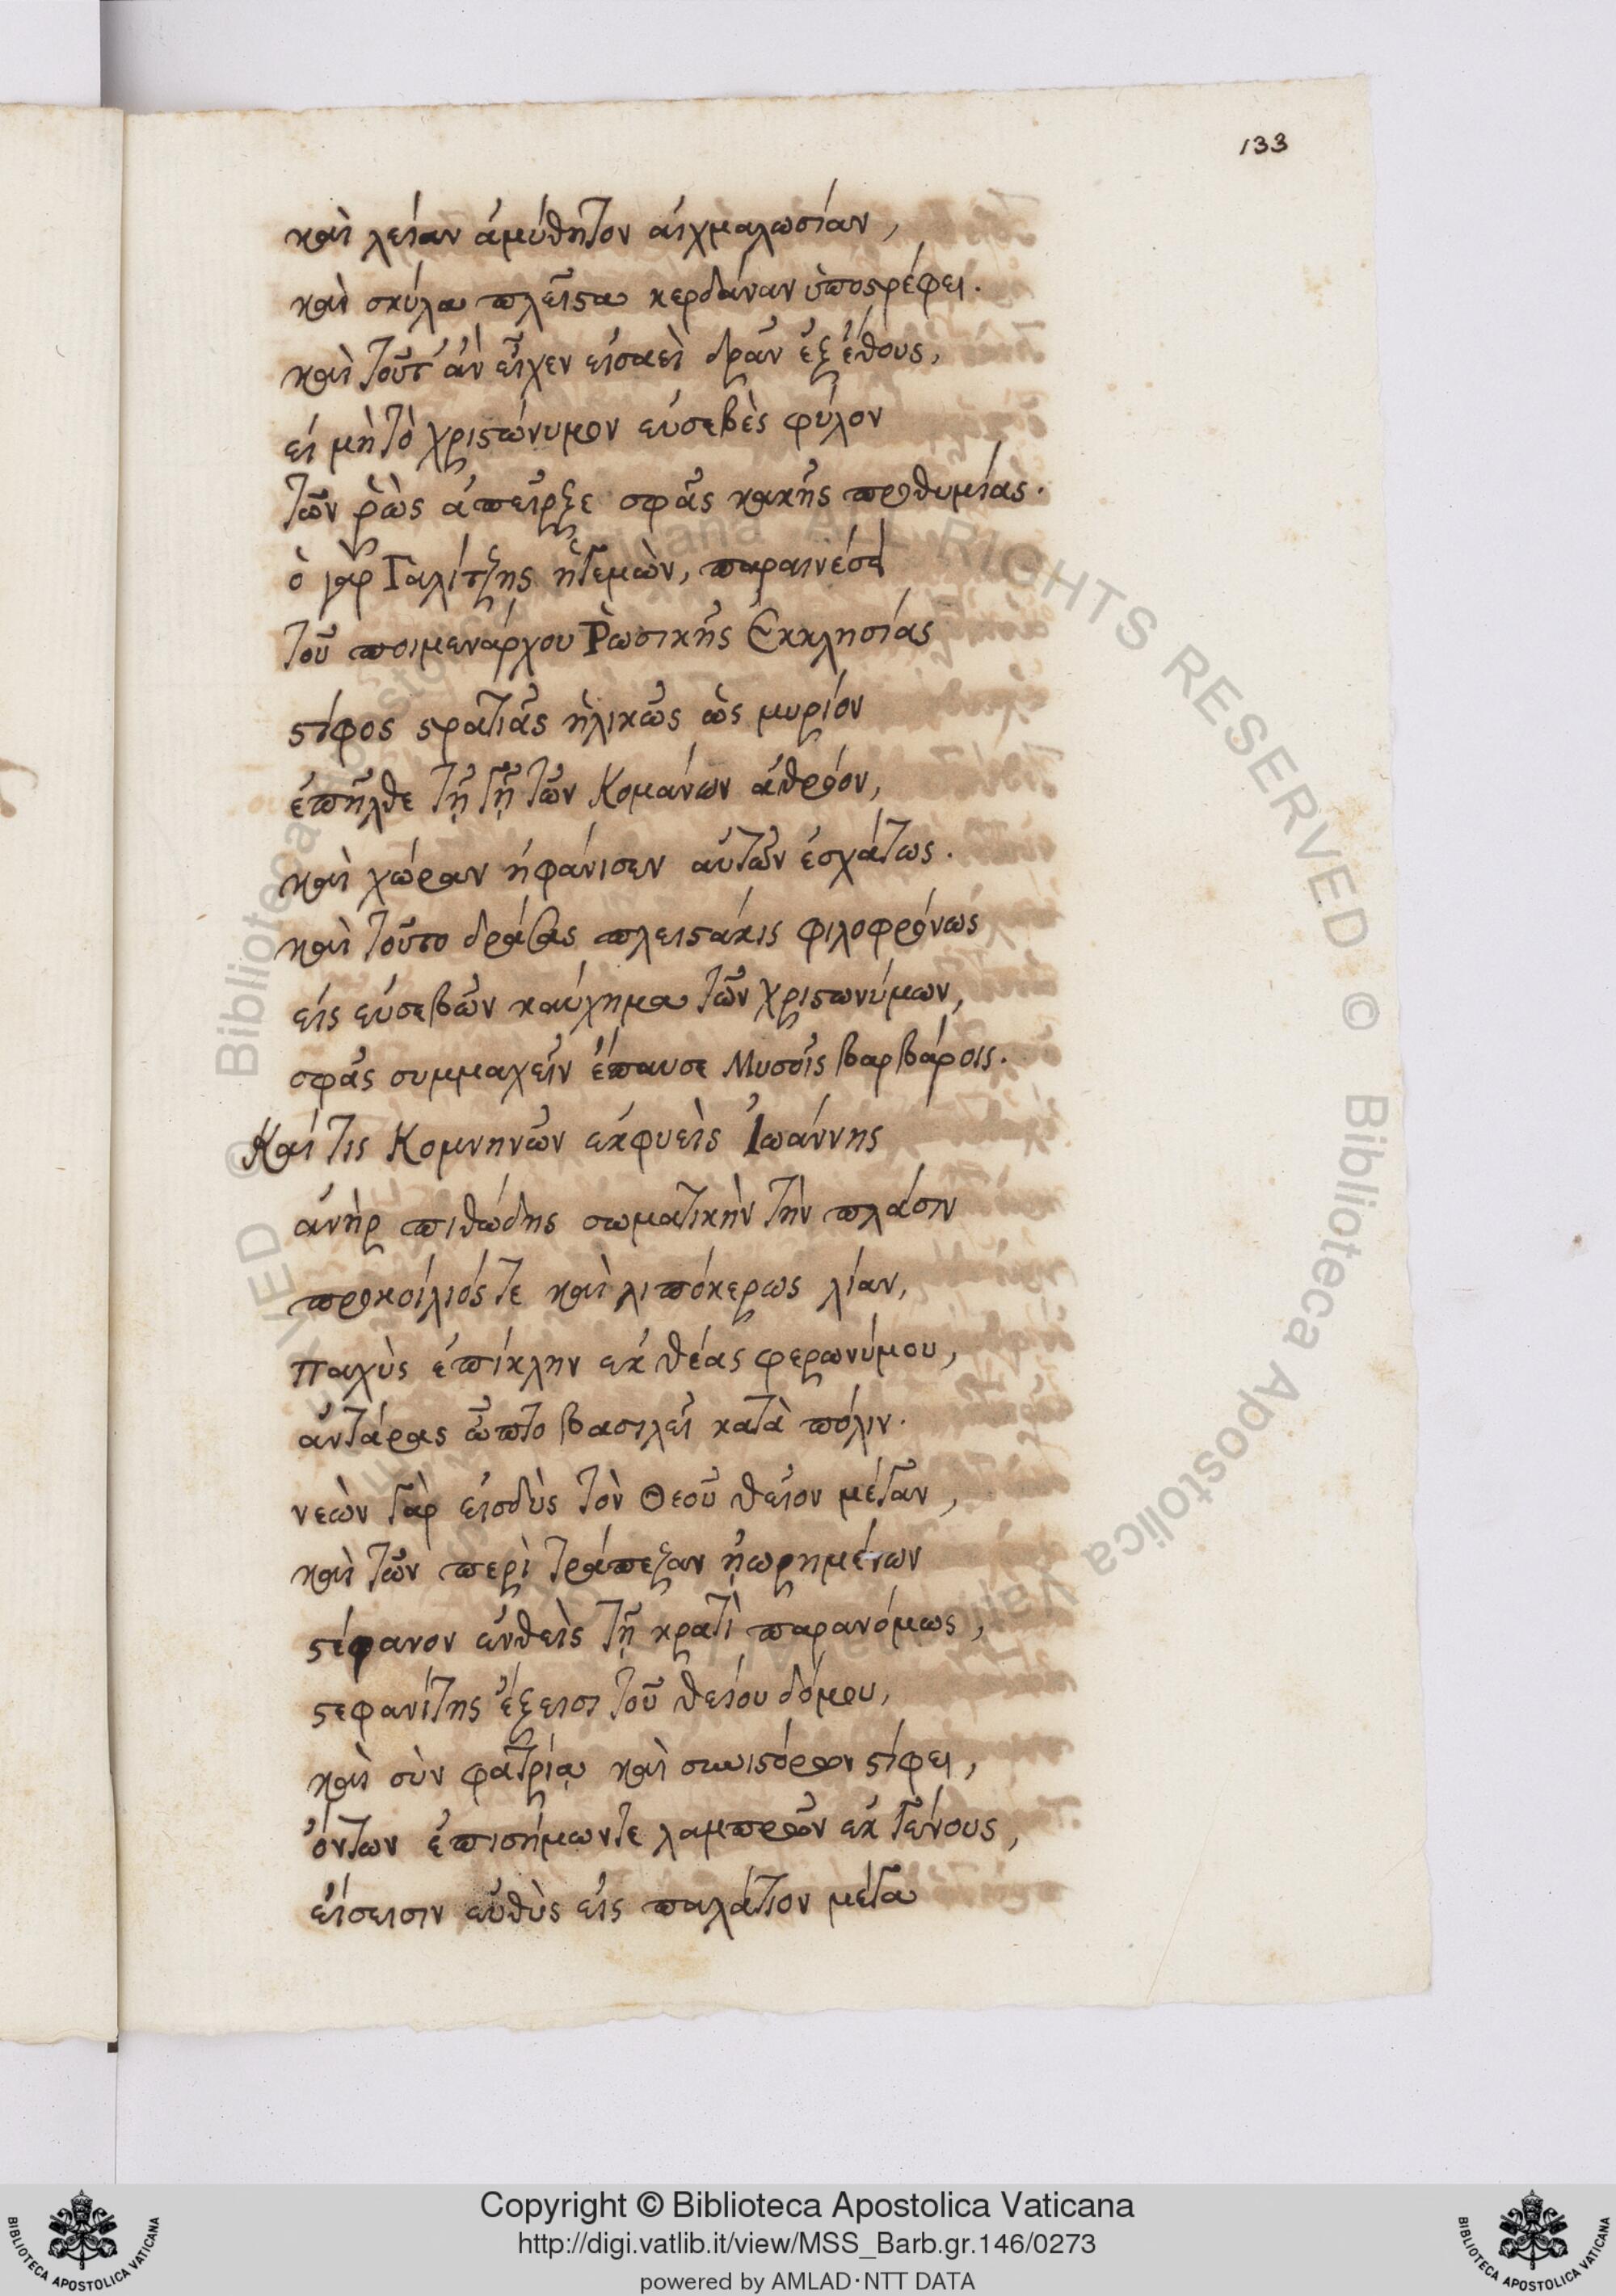 133
καὶ λείαν ἀμύθητον αἰχμαλωσίαν,
καὶ σκύλα πλεῖστα κερδάναν ὑποστρέφει.
καὶ τοῦτ' ἂν εἶχεν εἰσαεὶ δρᾶν ἐξ ἔθους,
εἰ μὴ τὸ χριστώνυμον εὐσεβὲς φύλον
τῶν ῥὼς ἀπεῖρξε σφᾶς κακῆς προθυμίας.
ὁ γὰρ Γαλίτζης ἡγεμὼν, παραινέσει
τοῦ ποιμενάρχου Ῥωσικῆς Ἐκκλησίας
στίφος στρατιᾶς ἡλικῶς ὡς μυρίον
ἐπῆλθε τῇ γῇ τῶν Κομάνων ἀθρόον,
καὶ χώραν ἠφάνισεν αὐτῶν ἐσχάτως.
καὶ τοῦτο δράσας πλειστάκις φιλοφρόνως
εἰς εὐσεβῶν καύχημα τῶν χριστωνύμων,
σφᾶς συμμαχεῖν ἔπαυσε Μυσοῖς βαρβάροις.
Καί τις Κομνηνῶν ἐκφυεὶς Ἰωάννης
ἀνὴρ πιθώδης σωματικὴν τὴν πλάσιν
προκοίλιός τε καὶ λιπόκερως λίαν,
παχὺς ἐπίκλην ἐκ θέας φερωνύμου,
ἀντάρας ὦπτο βασιλεῖ κατὰ πόλιν.
νεὼν γὰρ εἰσδὺς τὸν Θεοῦ θεῖον μέγαν,
καὶ τῶν περὶ τράπεζαν ᾐωρημένων
στέφανον ἐνθεὶς τῇ κρατὶ παρανόμως,
στεφανίτης ἔξεισι τοῦ θείου δόμου,
καὶ σὺν φατρίᾳ καὶ συνιστόρων στίφει,
ὄντων ἐπισήμων τε λαμπρῶν ἐκ γένους,
εἴσεισιν εὐθὺς εἰς παλάτιον μέγα
Copyright © Biblioteca Apostolica Vaticana
http://digi.vatlib.it/view/MSS_Barb.gr.146/0273
powered by AMLAD·NTT DATA
BIBLIOTECA APOSTOLICA VATICANA
BIBLIOTECA APOSTOLICA VATICANA